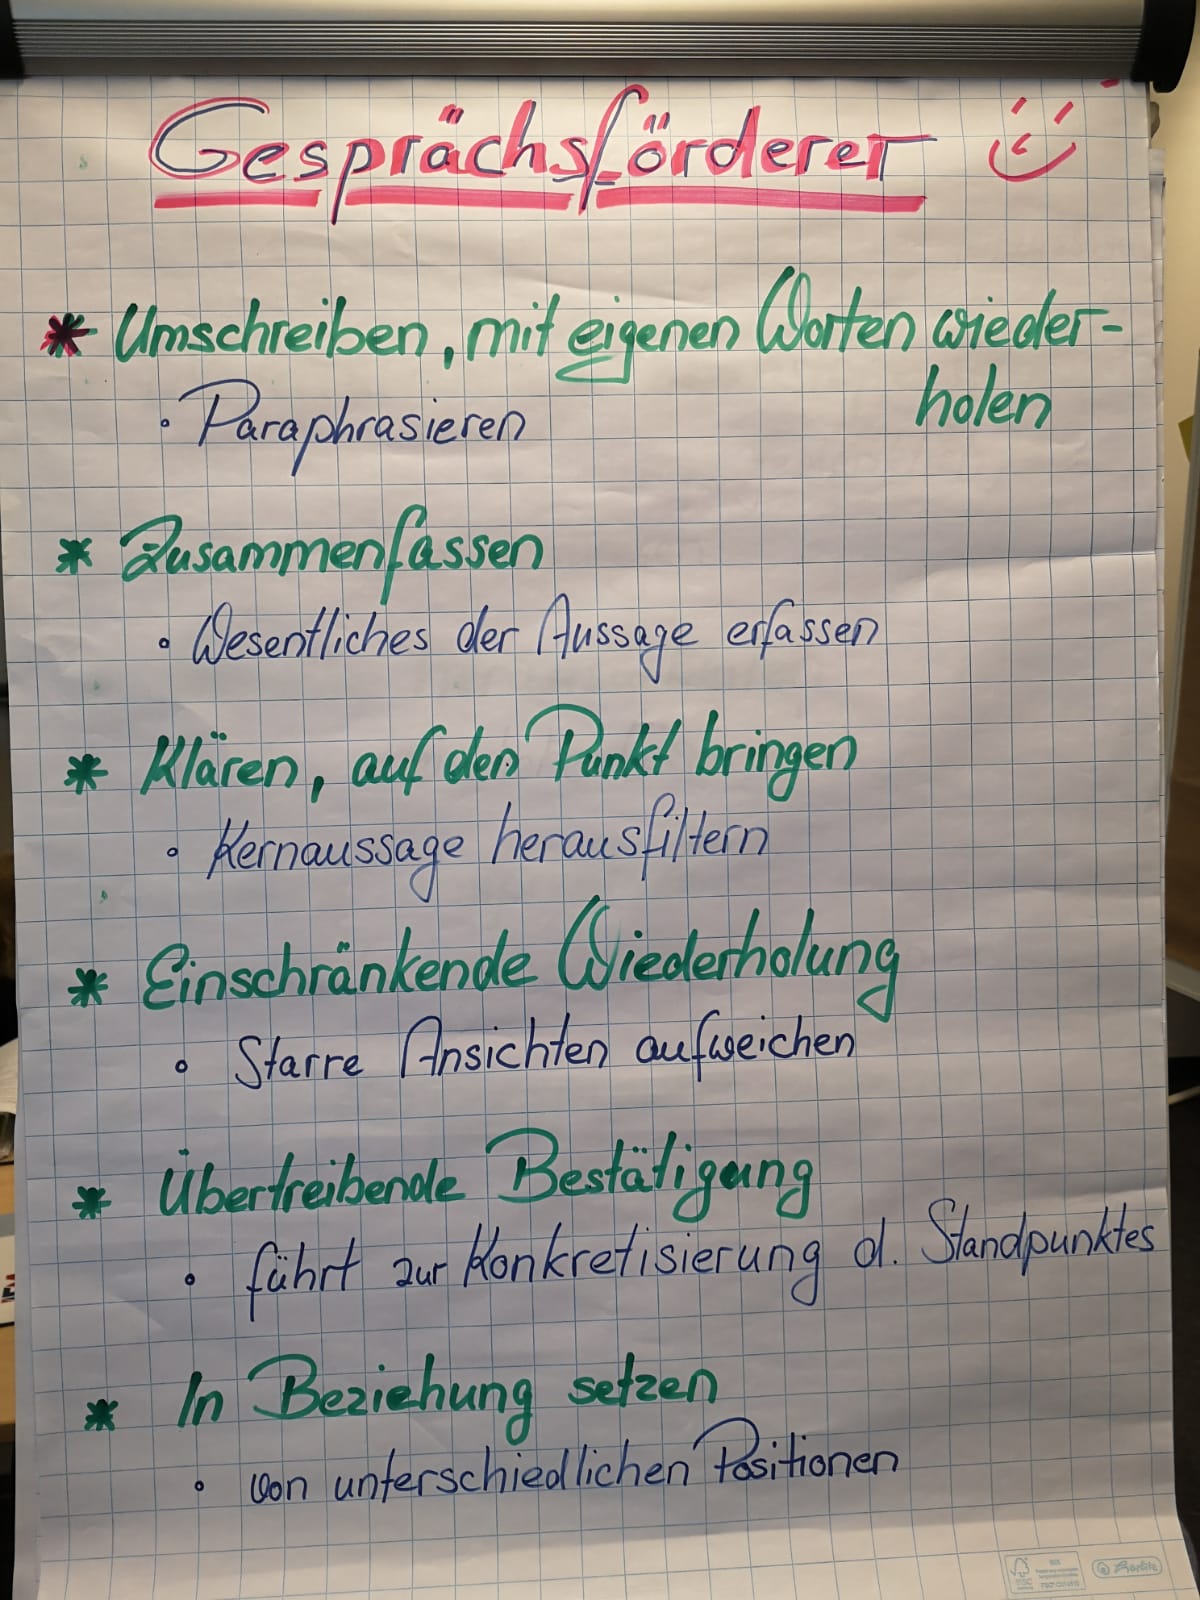 Gesprächsförderer
* Umschreiben, mit eigenen Worten wieder-
holen
• Paraphrasieren
* Zusammenfassen
• Wesentliches der Aussage erfassen
* Klären, auf den Punkt bringen
• Kernaussage herausfiltern
* Einschränkende Wiederholung
• Starre Ansichten aufweichen
* Übertreibende Bestätigung
• führt zur Konkretisierung d. Standpunktes
* In Beziehung setzen
• von unterschiedlichen Positionen
FSC
Herlitz